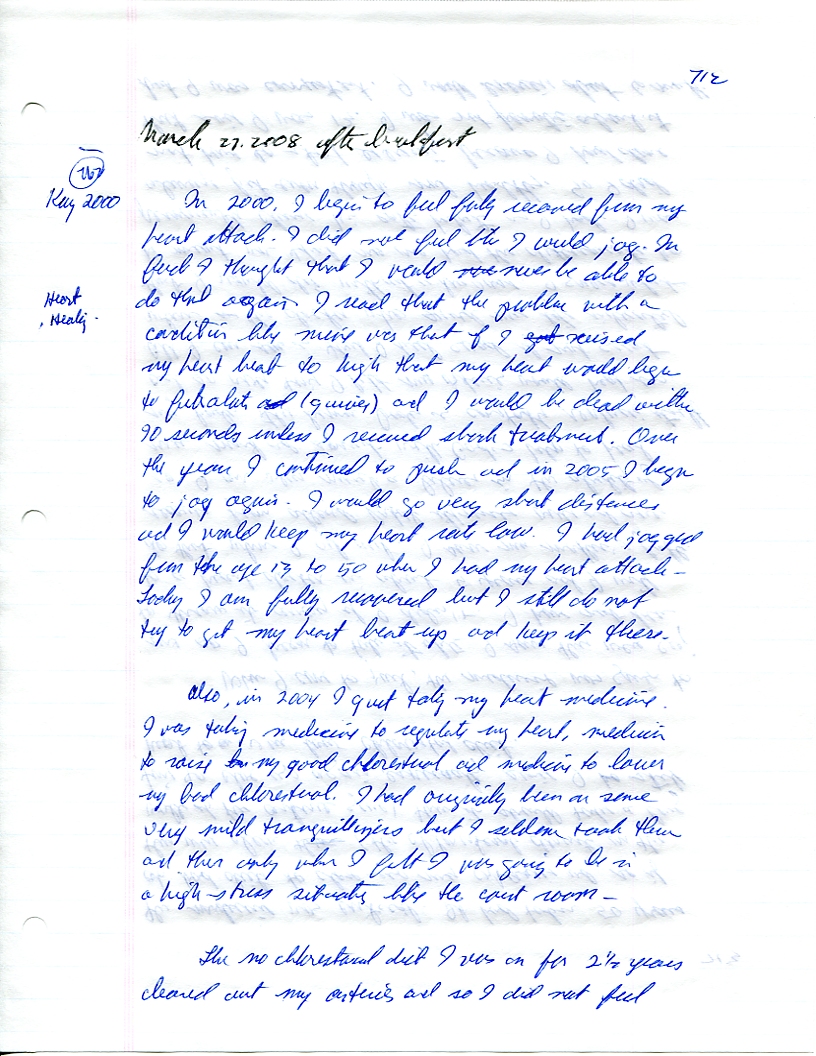 712
March 27. 2008 after breakfast
Kay 2000
In 2000, I begin to feel fully recovered from my
heart attack. I did not feel like I would jog. In
fact I thought that I would never be able to
do that again. I read that the problem with a
Heart
Healing
condition like mine was that if I got raised
my heart beat to high that my heart would begin
to fibralate and (quiver) and I would be dead within
90 seconds unless I received shock treatment. Over
the years I continued to push and in 2005 I began
to jog again. I would go very short distances
and I would keep my heart rate low. I had jogged
from the age 13 to 50 when I had my heart attack -
Today I am fully recovered but I still do not
try to get my heart beat up and keep it there.
Also, in 2004 I quit taking my heart medicine.
I was taking medicine to regulate my heart, medicine
to raise my good chlorestrual and medicine to lower
my bad chlorestrual. I had originally been on some
very mild tranquillizers but I seldom took them
and then only when I felt I was going to be in
a high-stress situation like the court room -
The no chlorestraul diet I was on for 2½ years
cleared out my arteries and so I did not feel